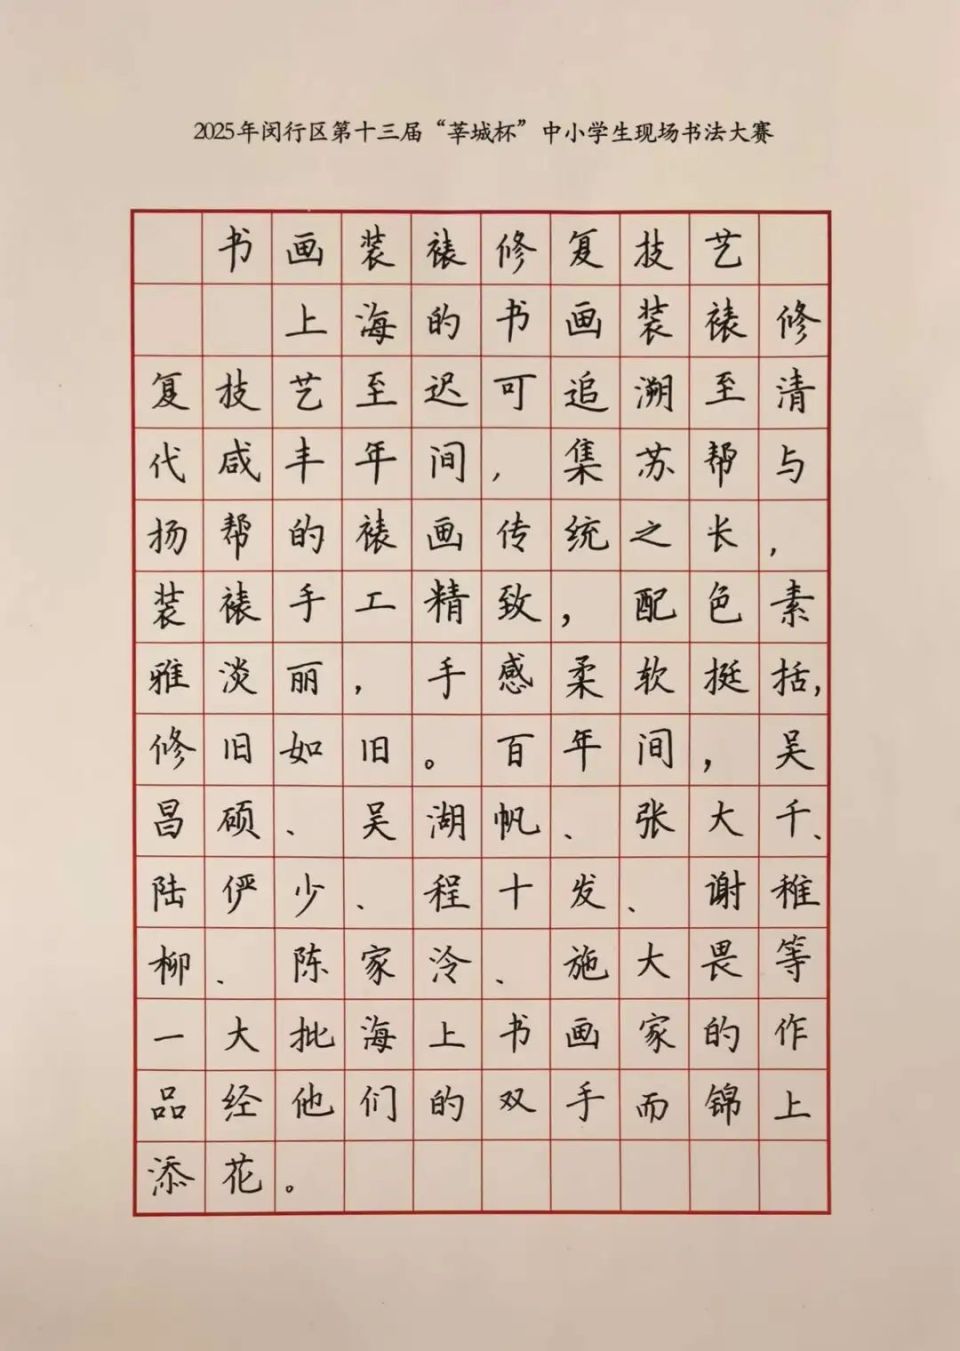 2025年闵行区第十三届“莘城杯”中小学生现场书法大赛
书画装裱修复技艺
上海的书画装裱修
复技艺至迟可追溯至清
代咸丰年间，集苏帮与
扬帮的裱画传统之长，
装裱手工精致，配色素
雅淡丽，手感柔软挺括，
修旧如旧。百年间，吴
昌硕、吴湖帆、张大千、
陆俨少、程十发、谢稚
柳、陈家泠、施大畏等
一大批海上书画家的作
品经他们的双手而锦上
添花。